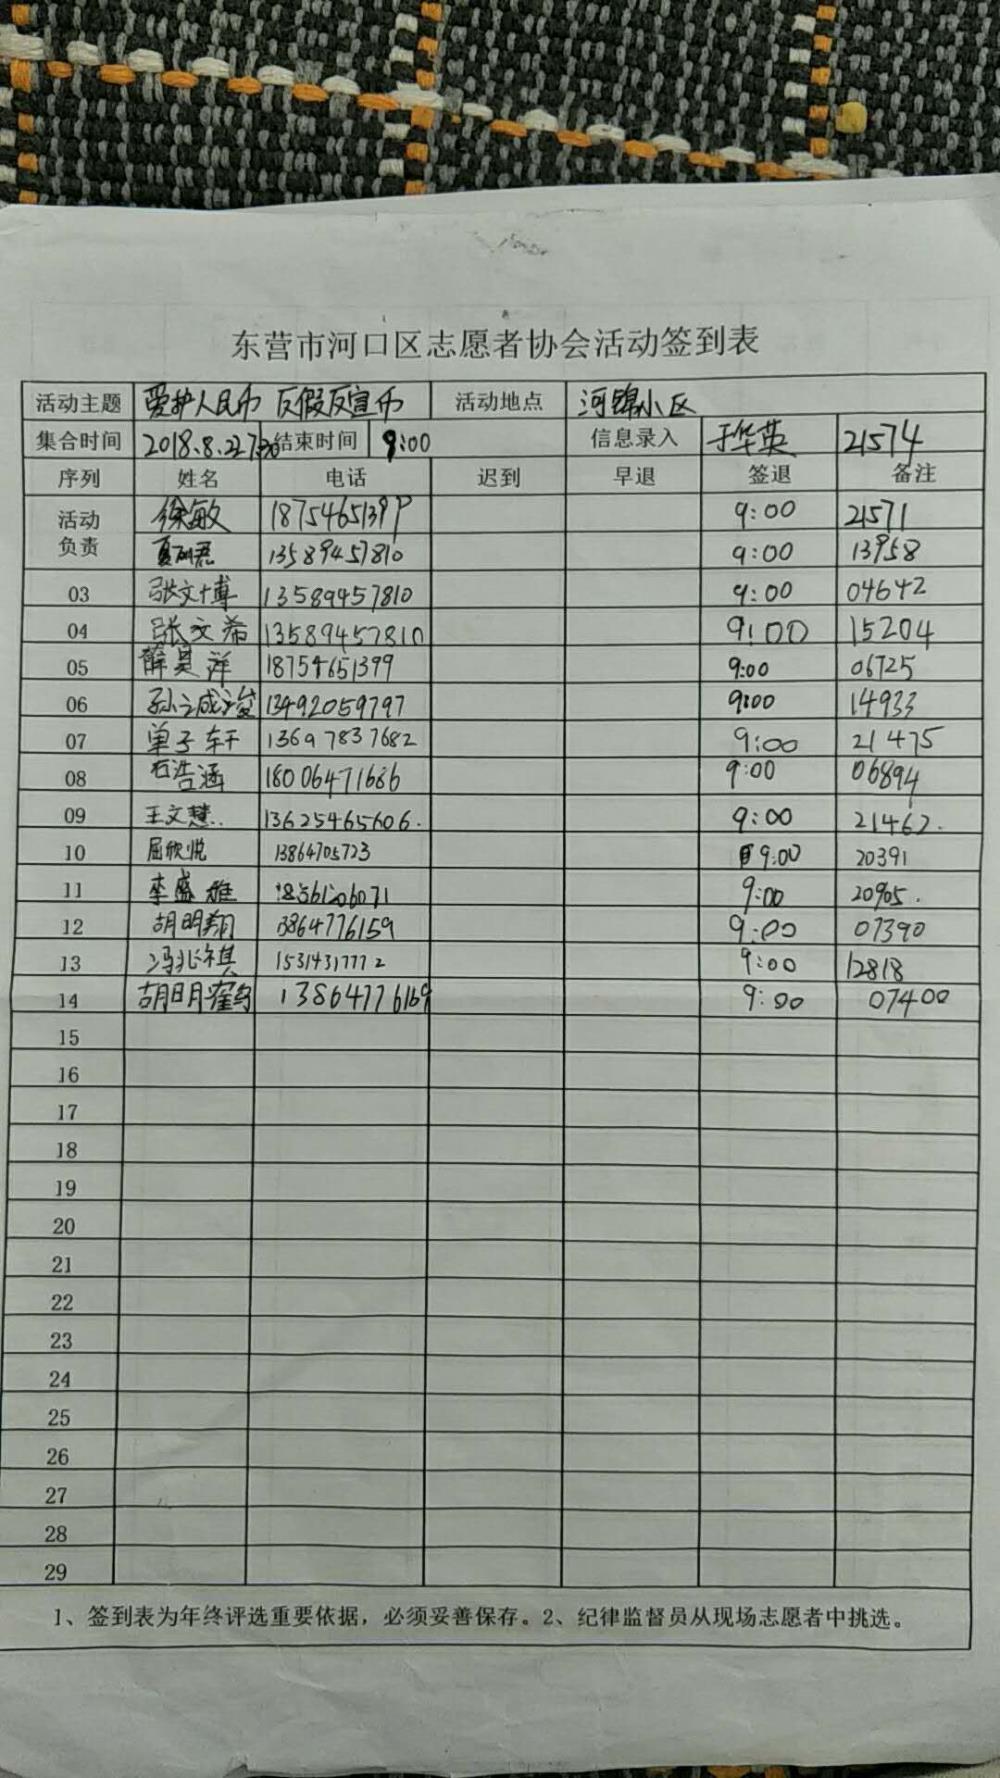 东营市河口区志愿者协会活动签到表
活动主题 爱护人民币 反假反宣币 活动地点 河锦小区
集合时间 2018.8.22 7:30 结束时间 9:00 信息录入 于华英 21574
序列 姓名 电话 迟到 早退 签退 备注
活动负责 徐敏 18754651399 9:00 21571
13589457810 9:00 13958
03 张文博 13589457810 9:00 04642
04 张文希 13589457810 9:00 15204
05 薛昊洋 18754651399 9:00 06725
06 孙诚俊 13492059797 9:00 14933
07 单子轩 13697837682 9:00 21475
08 石浩涵 18006471686 9:00 06894
09 王文慧.. 13625465606. 9:00 21462.
10 屈欣悦 13864705723 9:00 20391
11 李盛雄 9:00 20905.
12 胡明翔 13864776159 9:00 07390
13 冯兆祺 15314317772 9:00 12818
14 胡明鹤 13864776169 9:00 07400
15
16
17
18
19
20
21
22
23
24
25
26
27
28
29
1、签到表为年终评选重要依据，必须妥善保存。2、纪律监督员从现场志愿者中挑选。